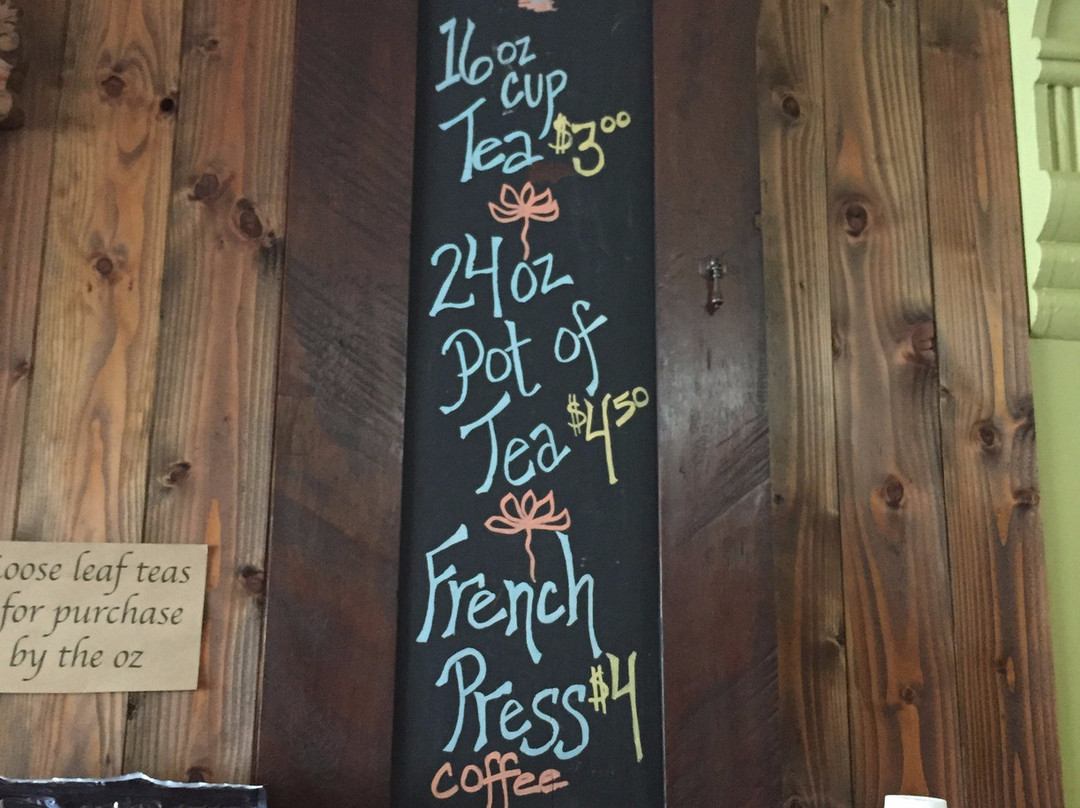 16 oz
cup
Tea $3.00
24 oz
Pot of
Tea $4.50
French
Press $4
coffee
oose leaf teas
for purchase
by the oz